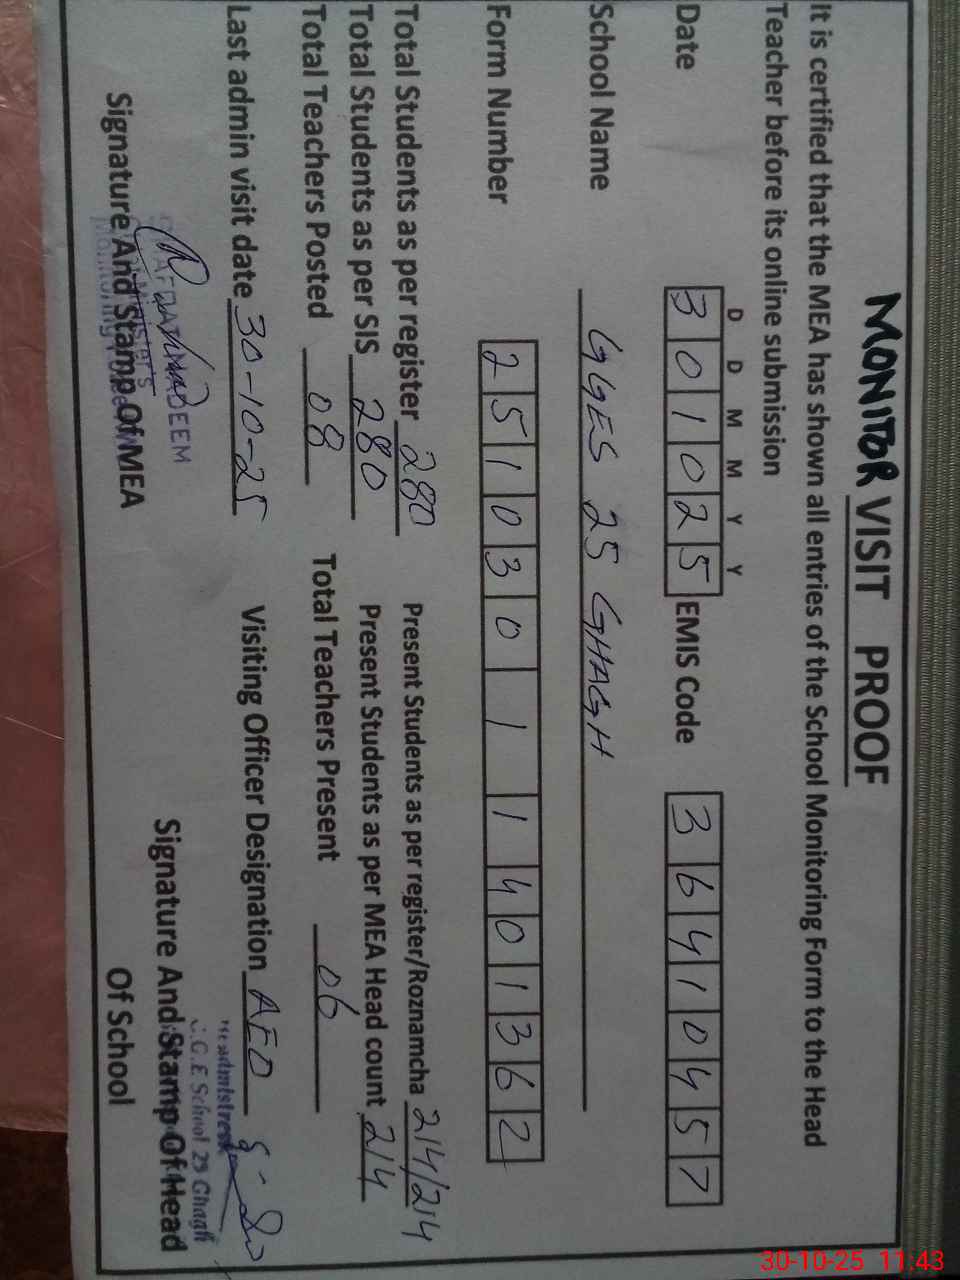 MONITOR VISIT PROOF
It is certified that the MEA has shown all entries of the School Monitoring Form to the Head
Teacher before its online submission
D D M M Y Y
Date 3 0 1 0 2 5 EMIS Code 3 6 4 1 0 4 5 7
School Name GGES 25 GHAGH
Form Number 2 5 1 0 3 0 1 1 4 0 1 3 6 2
Total Students as per register 280 Present Students as per register/Roznamcha 214/214
Total Students as per SIS 280 Present Students as per MEA Head count 214
Total Teachers Posted 08 Total Teachers Present 06
Last admin visit date 30-10-25 Visiting Officer Designation AEO
NADEEM
Minister's
Monitoring
Signature And Stamp Of MEA
Headmistress
G.G.E School 25 Ghagh
Signature And Stamp Of Head
Of School
30-10-25 11:43